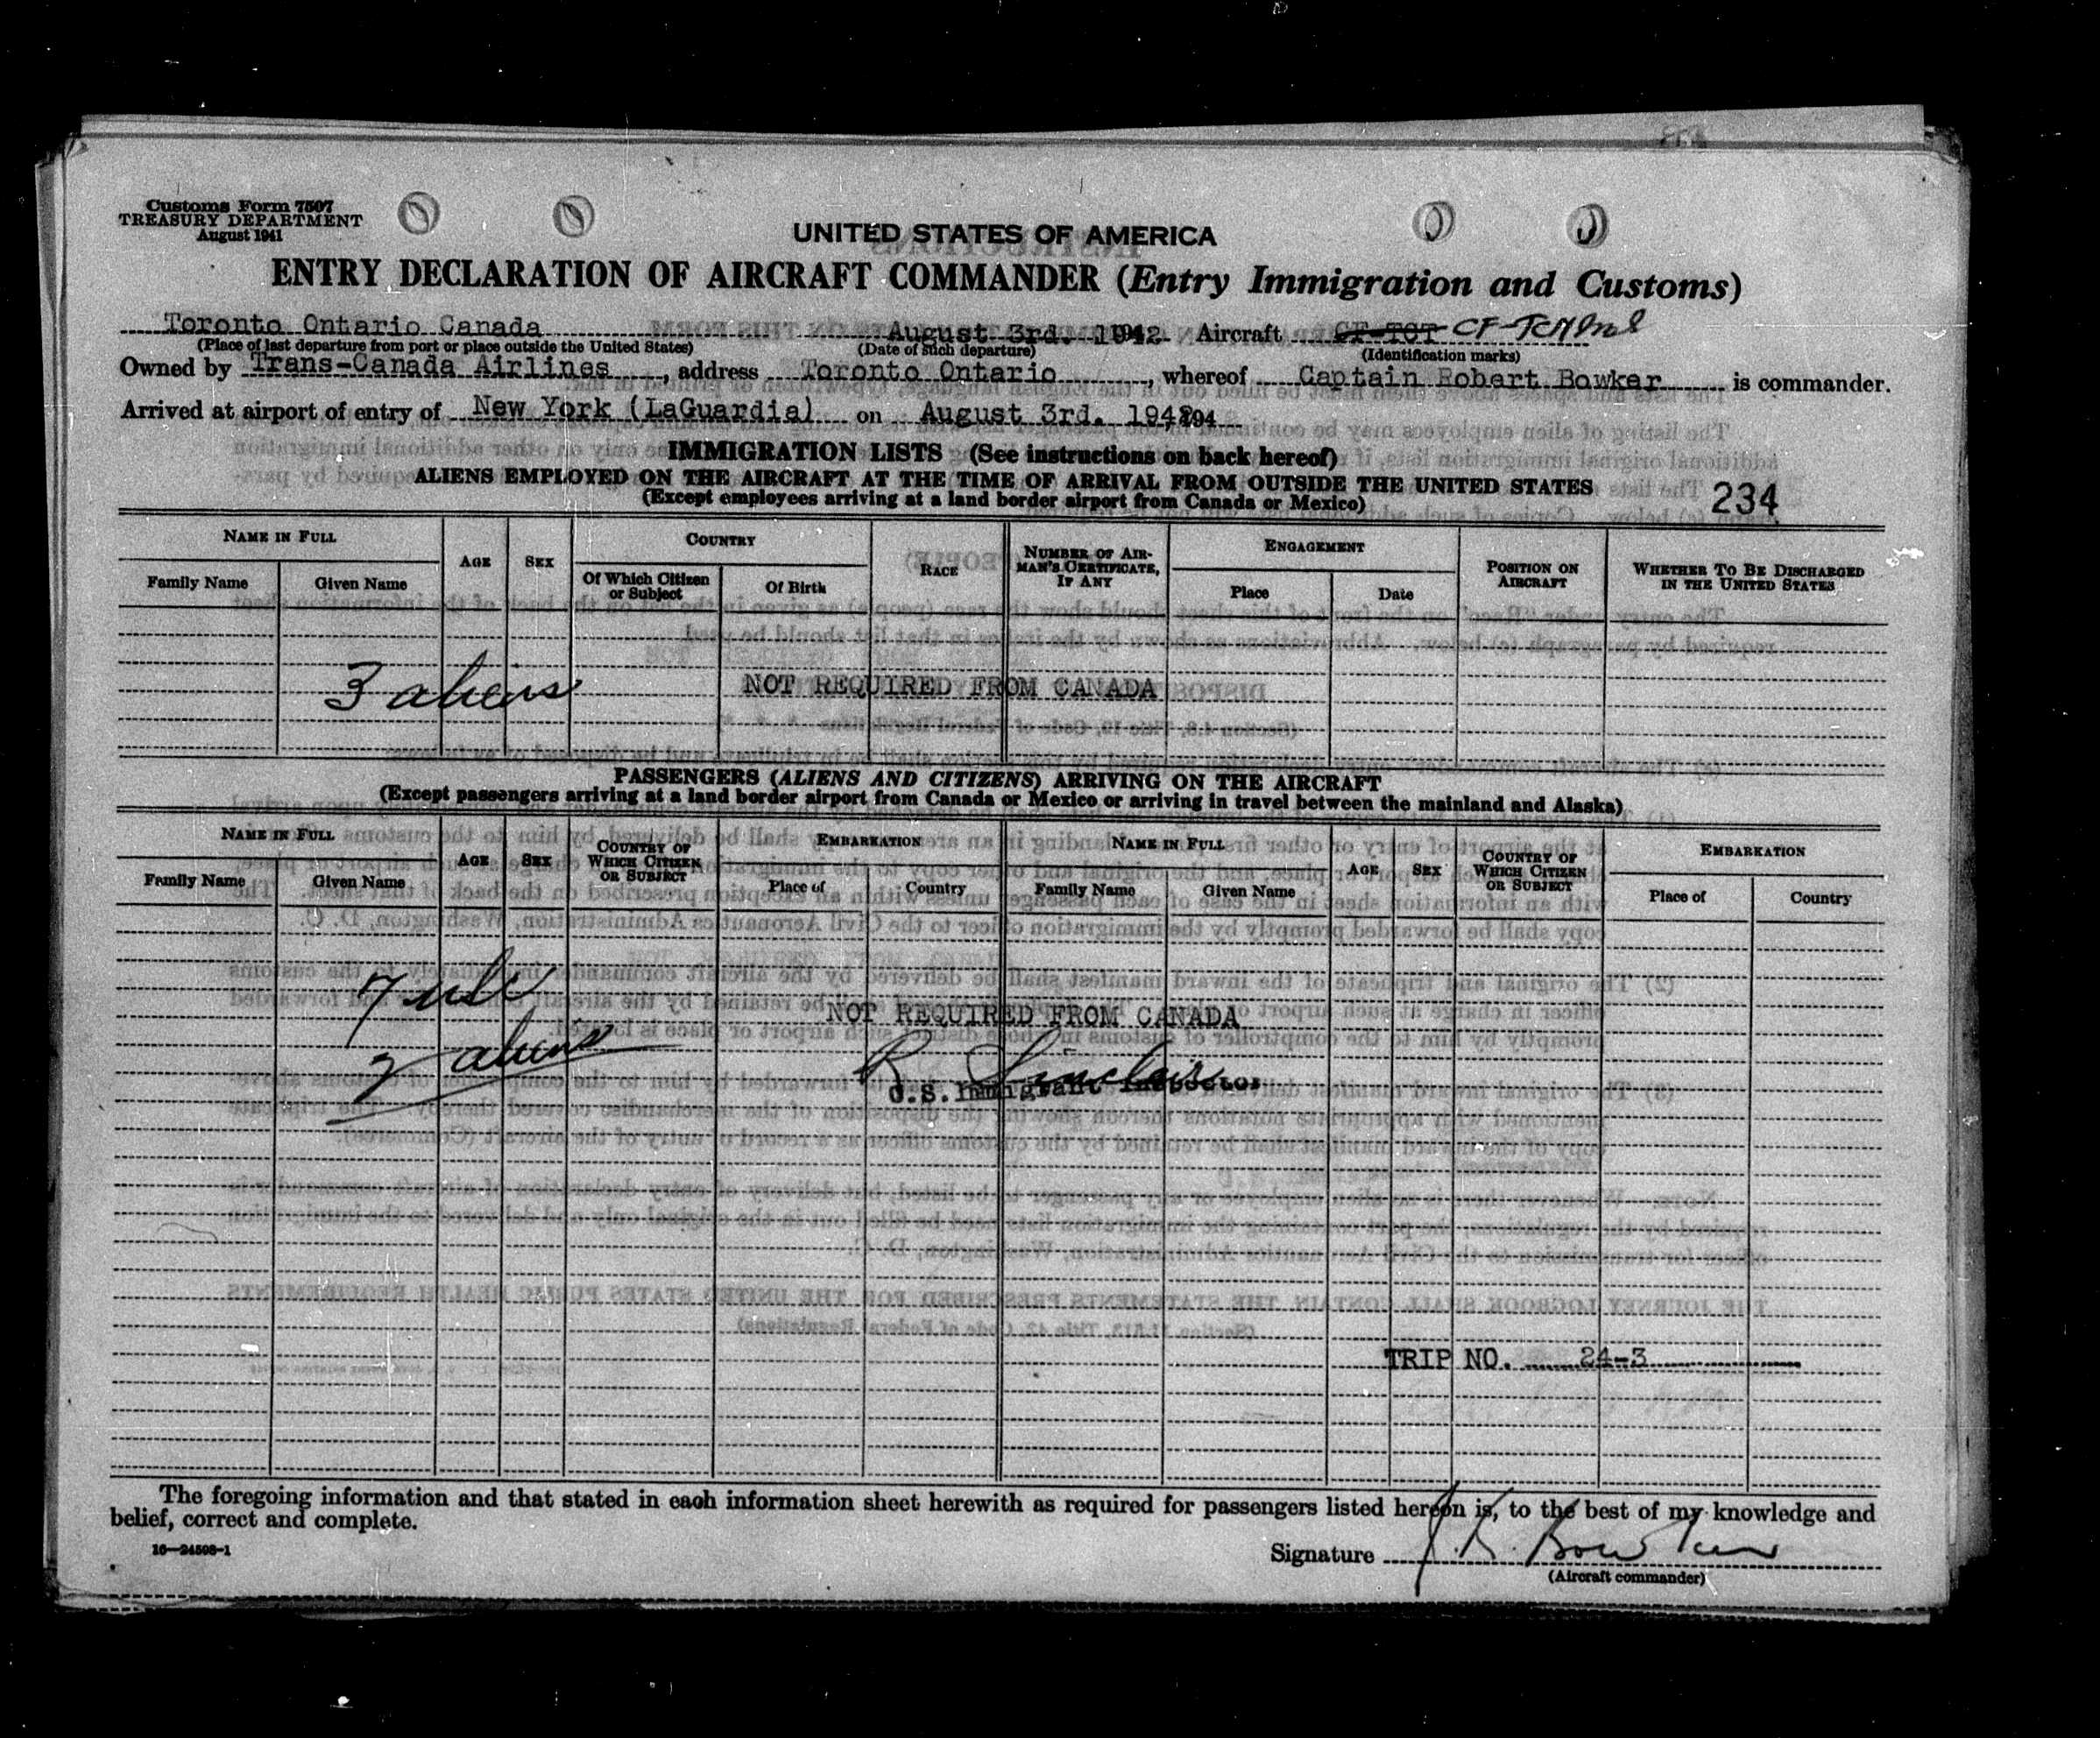 Customs Form 7507
TREASURY DEPARTMENT
August 1941
UNITED STATES OF AMERICA
ENTRY DECLARATION OF AIRCRAFT COMMANDER (Entry Immigration and Customs)
Toronto Ontario Canada August 3rd. 1942 Aircraft CF-TCT CF-TCM
(Place of last departure from port or place outside the United States) (Date of such departure) (Identification marks)
Owned by Trans-Canada Airlines, address Toronto Ontario, whereof Captain Robert Bowker is commander.
Arrived at airport of entry of New York (LaGuardia) on August 3rd. 1942, 194
IMMIGRATION LISTS (See instructions on back hereof)
ALIENS EMPLOYED ON THE AIRCRAFT AT THE TIME OF ARRIVAL FROM OUTSIDE THE UNITED STATES
(Except employees arriving at a land border airport from Canada or Mexico)
234
NAME IN FULL AGE SEX COUNTRY RACE NUMBER OF AIRMAN'S CERTIFICATE, IF ANY ENGAGEMENT POSITION ON AIRCRAFT WHETHER TO BE DISCHARGED IN THE UNITED STATES
Family Name Given Name Of Which Citizen or Subject Of Birth Place Date
3 aliens NOT REQUIRED FROM CANADA
PASSENGERS (ALIENS AND CITIZENS) ARRIVING ON THE AIRCRAFT
(Except passengers arriving at a land border airport from Canada or Mexico or arriving in travel between the mainland and Alaska)
NAME IN FULL AGE SEX COUNTRY OF WHICH CITIZEN OR SUBJECT EMBARKATION NAME IN FULL AGE SEX COUNTRY OF WHICH CITIZEN OR SUBJECT EMBARKATION
Family Name Given Name Place of Country Family Name Given Name Place of Country
7
NOT REQUIRED FROM CANADA
aliens
R Sinclair
U.S. Immigrant Inspector
TRIP NO. 24-3
The foregoing information and that stated in each information sheet herewith as required for passengers listed hereon is, to the best of my knowledge and
belief, correct and complete.
16—24598-1
Signature J.R. Bowker
(Aircraft commander)